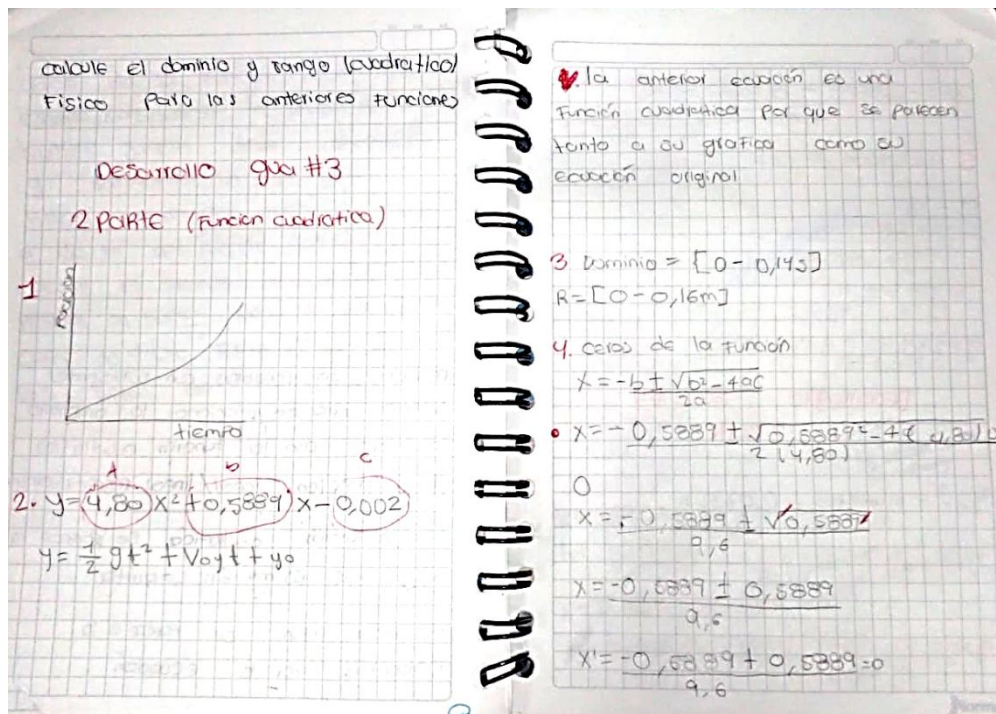 calcule el dominio y rango (cuadratico)
Fisico Para las anteriores funciones
Desarrollo guia #3
2 PARTE (Funcion cuadratica)
1
Posicion
tiempo
A b c
2. y=(4,80)x²+0,5889)x-0,002)
y= 1/2 gt² + Voyt + yo
la anterior ecuación es una
Función cuadratica por que se parecen
tanto a su grafica como su
ecuación original
3 Dominio = [0-0,14s]
R=[0-0,16m]
4. ceros de la función
x = -b ± √b²-4ac / 2a
x = -0,5889 ± √0,5889²-4(4,80)0 / 2(4,80)
0
x = -0,5889 ± √0,5889 / 9,6
x = -0,5889 ± 0,5889 / 9,6
x' = -0,5889 + 0,5889 = 0 / 9,6